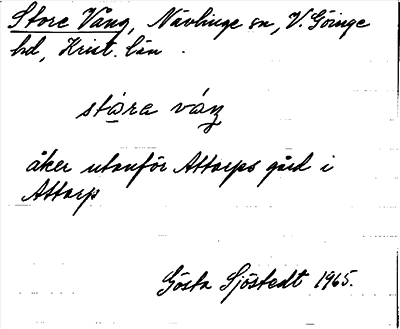 Store Vång, Nävlinge sn, V. Göinge
hd, Krist. län.
stǻra váŋ
åker utanför Attarps gård i
Attarp
Gösta Sjöstedt 1965.